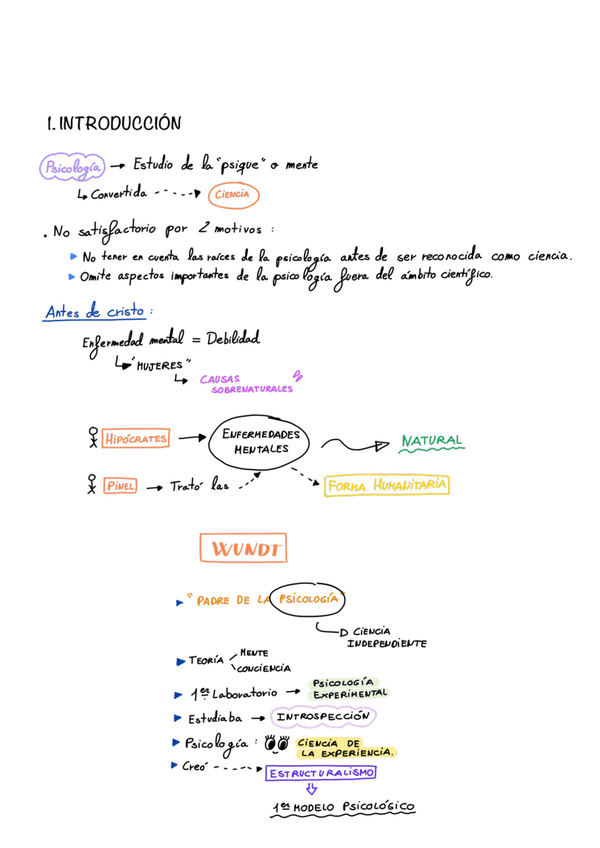 1. INTRODUCCIÓN
Psicología → Estudio de la "psique" o mente
↳ Convertida ----→ CIENCIA
. No satisfactorio por 2 motivos :
▶ No tener en cuenta las raíces de la psicología antes de ser reconocida como ciencia.
▶ Omite aspectos importantes de la psicología fuera del ámbito científico.
Antes de cristo :
Enfermedad mental = Debilidad
↳ "MUJERES"
↳ CAUSAS
SOBRENATURALES
HIPÓCRATES → ENFERMEDADES MENTALES → NATURAL
PINEL → Trató las ----→ FORMA HUMANITARÍA
WUNDT
▶ "PADRE DE LA PSICOLOGÍA"
CIENCIA
INDEPENDIENTE
▶ TEORÍA MENTE
CONCIENCIA
▶ 1er Laboratorio → PSICOLOGÍA
EXPERIMENTAL
▶ Estudiaba → INTROSPECCIÓN
▶ Psicología : CIENCIA DE
LA EXPERIENCIA.
▶ Creó -----→ ESTRUCTURALISMO
1er MODELO PSICOLÓGICO